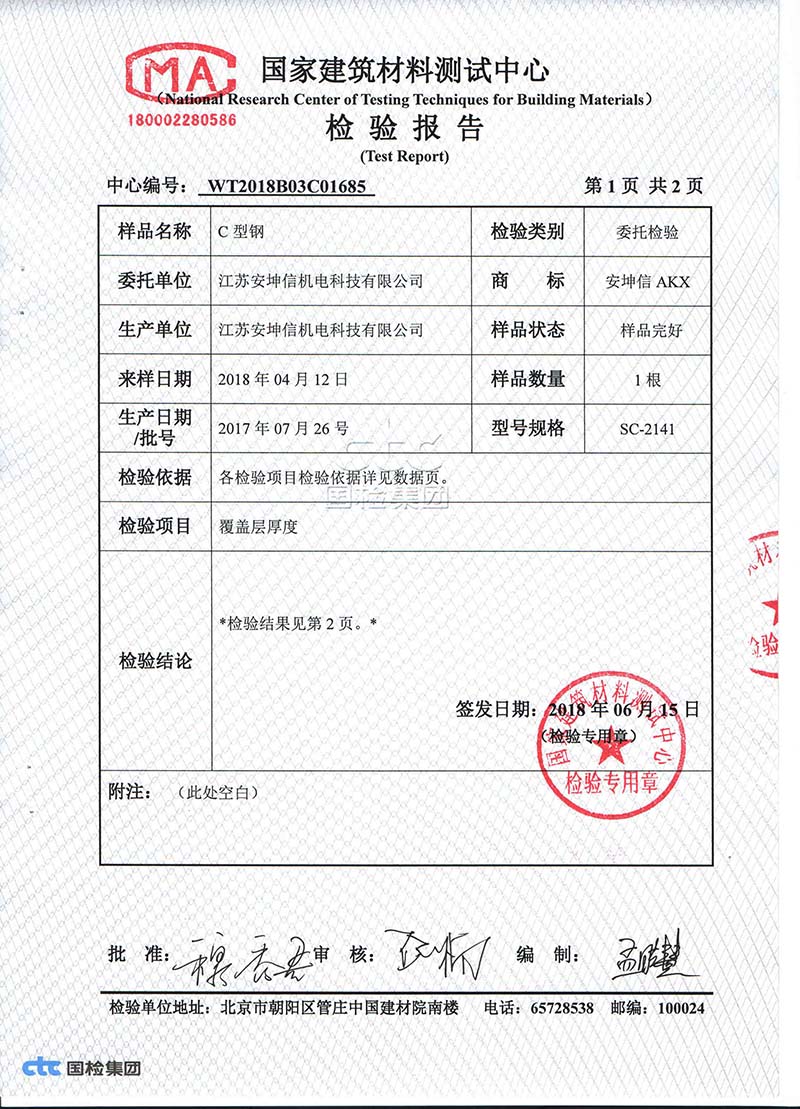 MA
国家建筑材料测试中心
(National Research Center of Testing Techniques for Building Materials)
180002280586
检验报告
(Test Report)
中心编号: WT2018B03C01685 第 1 页 共 2 页
样品名称 C 型钢 检验类别 委托检验
委托单位 江苏安坤信机电科技有限公司 商 标 安坤信 AKX
生产单位 江苏安坤信机电科技有限公司 样品状态 样品完好
来样日期 2018 年 04 月 12 日 样品数量 1 根
生产日期
/批号 2017 年 07 月 26 号 型号规格 SC-2141
检验依据 各检验项目检验依据详见数据页。
国检集团
检验项目 覆盖层厚度
*检验结果见第 2 页。*
检验结论
签发日期: 2018 年 06 月 15 日
(检验专用章)
国家建筑材料测试中心
检验专用章
附注: (此处空白)
批 准: 审 核: 编 制:
检验单位地址: 北京市朝阳区管庄中国建材院南楼 电话: 65728538 邮编: 100024
ctc 国检集团